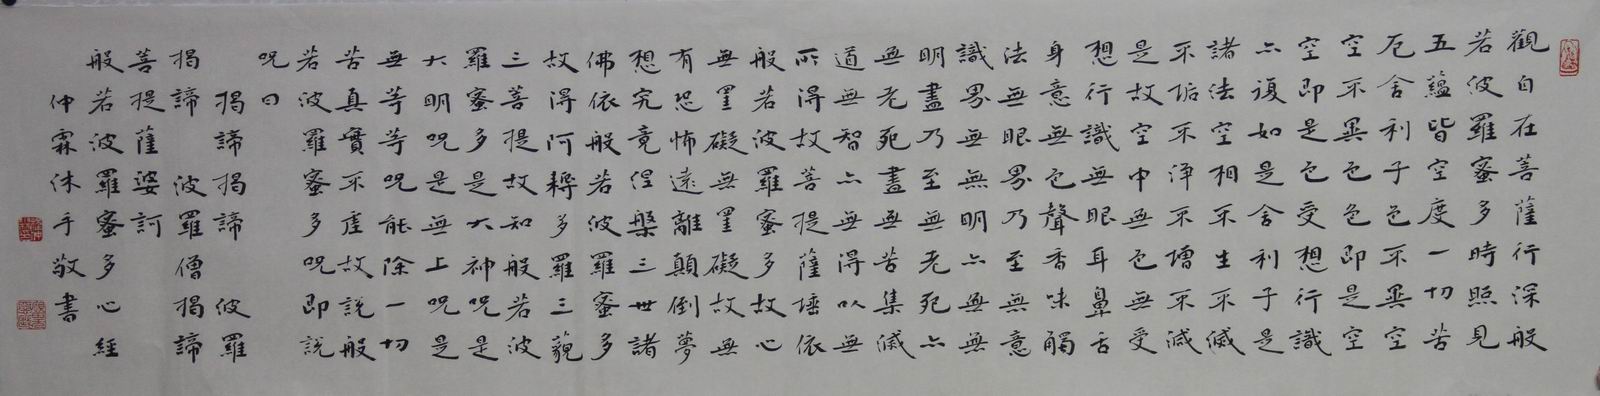 觀自在菩薩行深般
若波羅蜜多時照見
五蘊皆空度一切苦
厄舍利子色不異空
空不異色色即是空
空即是色受想行識
亦復如是舍利子是
諸法空相不生不滅
不垢不淨不增不減
是故空中無色無受
想行識無眼耳鼻舌
身意無色聲香味觸
法無眼界乃至無意
識界無無明亦無無
明盡乃至無老死亦
無老死盡無苦集滅
道無智亦無得以無
所得故菩提薩埵依
般若波羅蜜多故心
無罣礙無罣礙故無
有恐怖遠離顛倒夢
想究竟涅槃三世諸
佛依般若波羅蜜多
故得阿耨多羅三藐
三菩提故知般若波
羅蜜多是大神咒是
大明咒是無上咒是
無等等咒能除一切
苦真實不虛故說般
若波羅蜜多咒即說
咒曰
揭諦揭諦 波羅
揭諦 波羅僧揭諦
菩提薩婆訶
般若波羅蜜多心經
仲霖沐手敬書